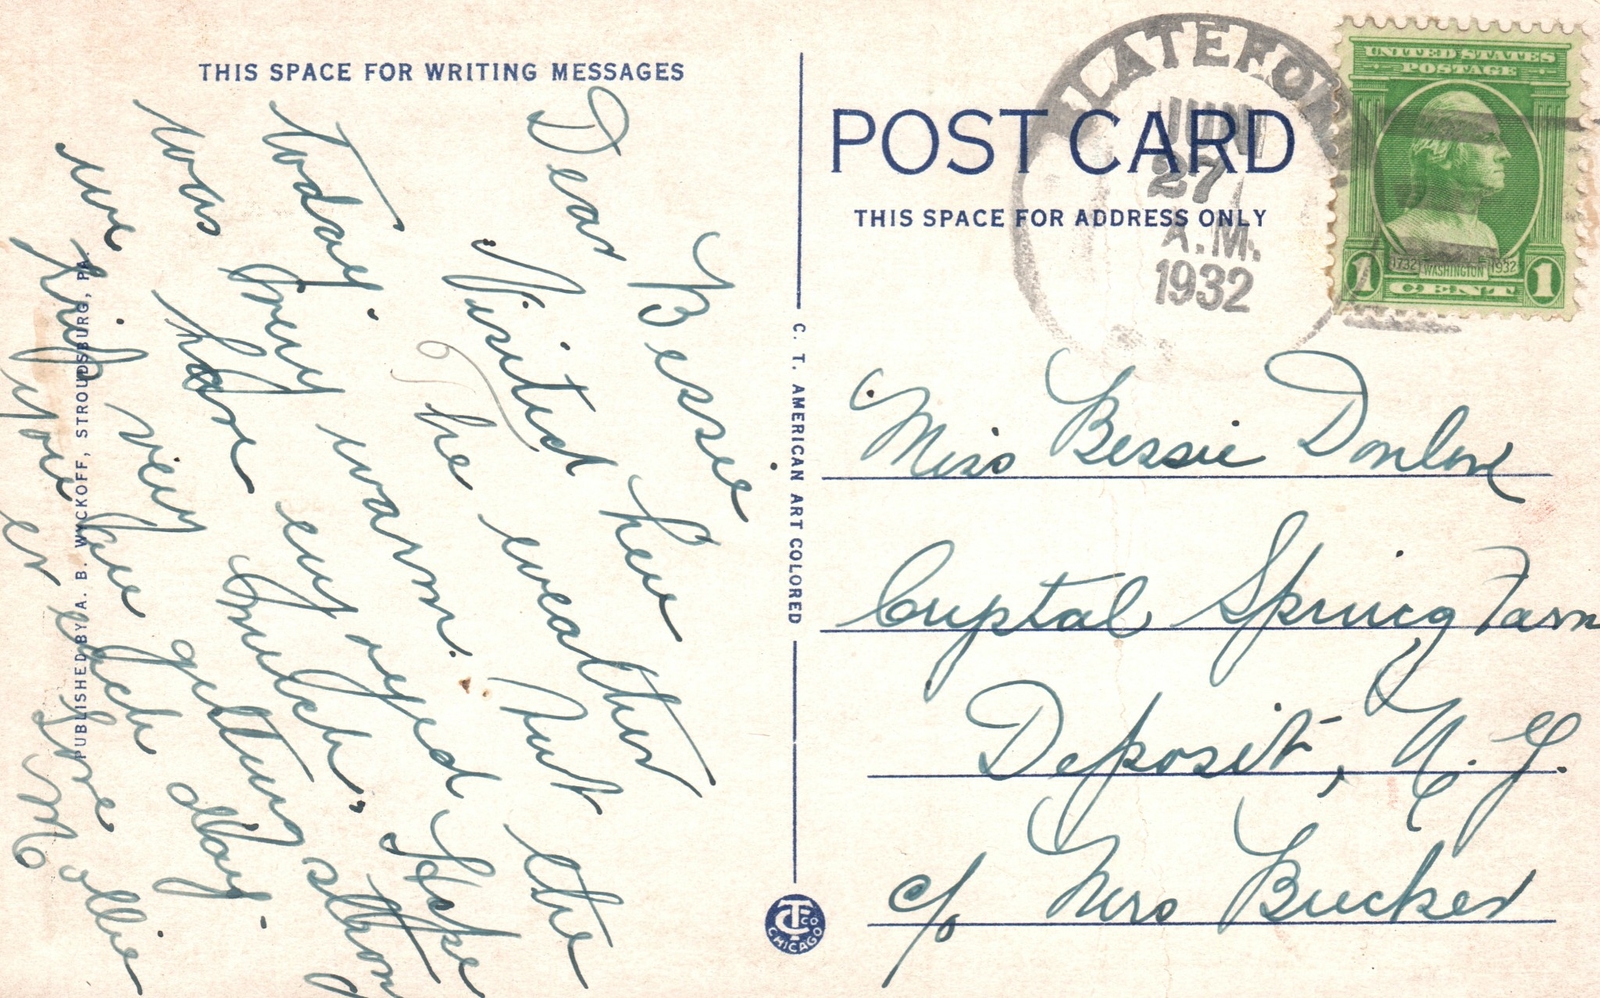 THIS SPACE FOR WRITING MESSAGES
Dear Bessie
Visited here
today. The weather
was very warm. But
we have enjoyed the
trip very much. Hope
you are getting strong
er each day.
Love
Mollie
PUBLISHED BY A. B. WYCKOFF, STROUDSBURG, PA.
C. T. AMERICAN ART COLORED
C T CO
CHICAGO
POST CARD
THIS SPACE FOR ADDRESS ONLY
SLATEFORD
JUN
27
A.M.
1932
UNITED STATES
POSTAGE
1732 WASHINGTON 1932
1 CENT 1
Miss Bessie Donlon
Crystal Spring Farm
Deposit, N. Y.
c/o Mrs Bucker